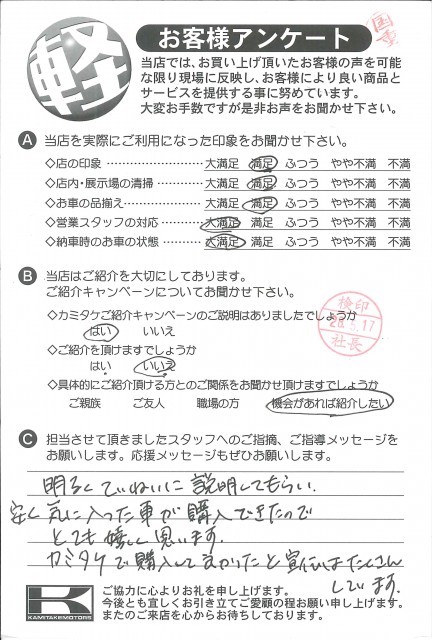 軽
お客様アンケート
国道
当店では、お買い上げ頂いたお客様の声を可能
な限り現場に反映し、お客様により良い商品と
サービスを提供する事に努めています。
大変お手数ですが是非お声をお聞かせ下さい。
A 当店を実際にご利用になった印象をお聞かせ下さい。
◇店の印象 大満足 満足 ふつう やや不満 不満
◇店内・展示場の清掃 大満足 満足 ふつう やや不満 不満
◇お車の品揃え 大満足 満足 ふつう やや不満 不満
◇営業スタッフの対応 大満足 満足 ふつう やや不満 不満
◇納車時のお車の状態 大満足 満足 ふつう やや不満 不満
B 当店はご紹介を大切にしております。
ご紹介キャンペーンについてお聞かせ下さい。
◇カミタケご紹介キャンペーンのご説明はありましたでしょうか
はい いいえ
◇ご紹介を頂けますでしょうか
はい いいえ
◇具体的にご紹介頂ける方とのご関係をお聞かせ頂けますでしょうか
ご親族 ご友人 職場の方 機会があれば紹介したい
検印
社長
C 担当させて頂きましたスタッフへのご指摘、ご指導メッセージを
お願いします。応援メッセージもぜひお願いします。
明るくていねいに説明してもらい、
安く気に入った車が購入できたので
とても嬉しく思います。
カミタケで購入して良かったと宣伝はたくさん
しています。
K
KAMITAKEMOTORS
ご協力に心よりお礼を申し上げます。
今後とも宜しくお引き立てご愛顧の程お願い申し上げます。
またのご来店を心からお待ちしております。